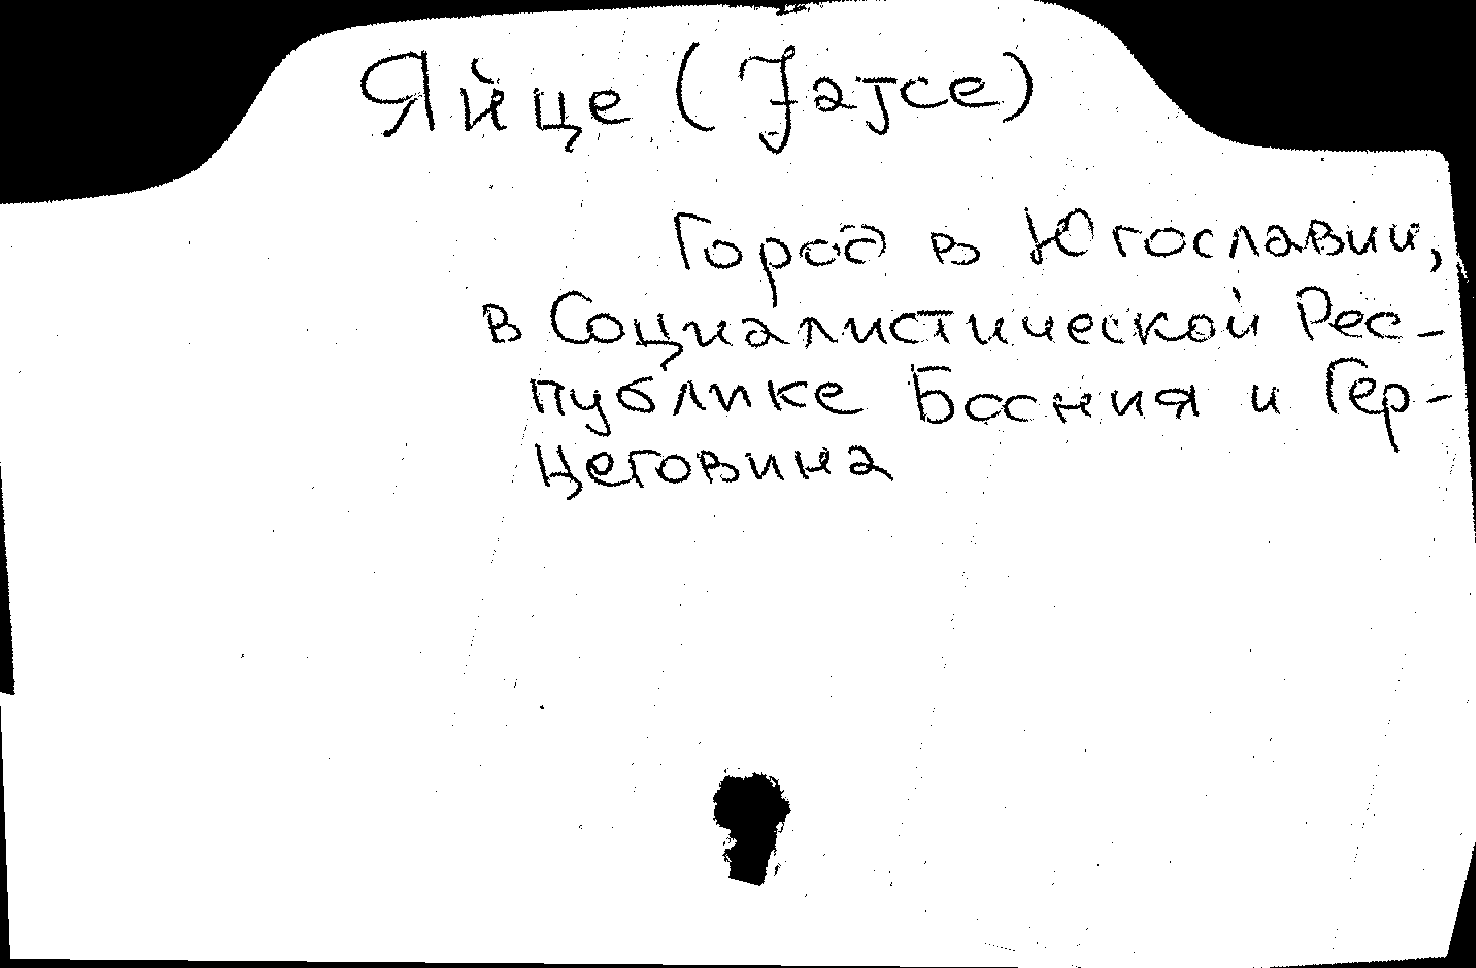 Яйце (Jajce)
Город в Югославии,
в Социалистической Рес-
публике Босния и Гер-
цеговина